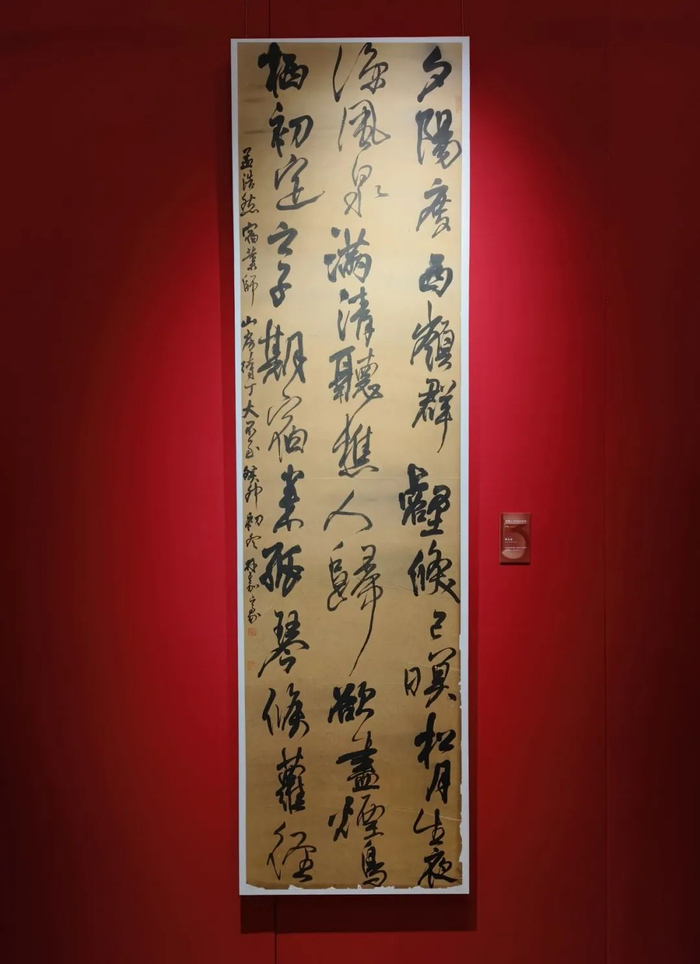 夕陽度西嶺群壑倏已暝松月生夜
涼風泉滿清聽樵人歸欲盡煙鳥
栖初定之子期宿来孤琴候蘿徑
孟浩然宿業師山房待丁大不至癸卯初冬